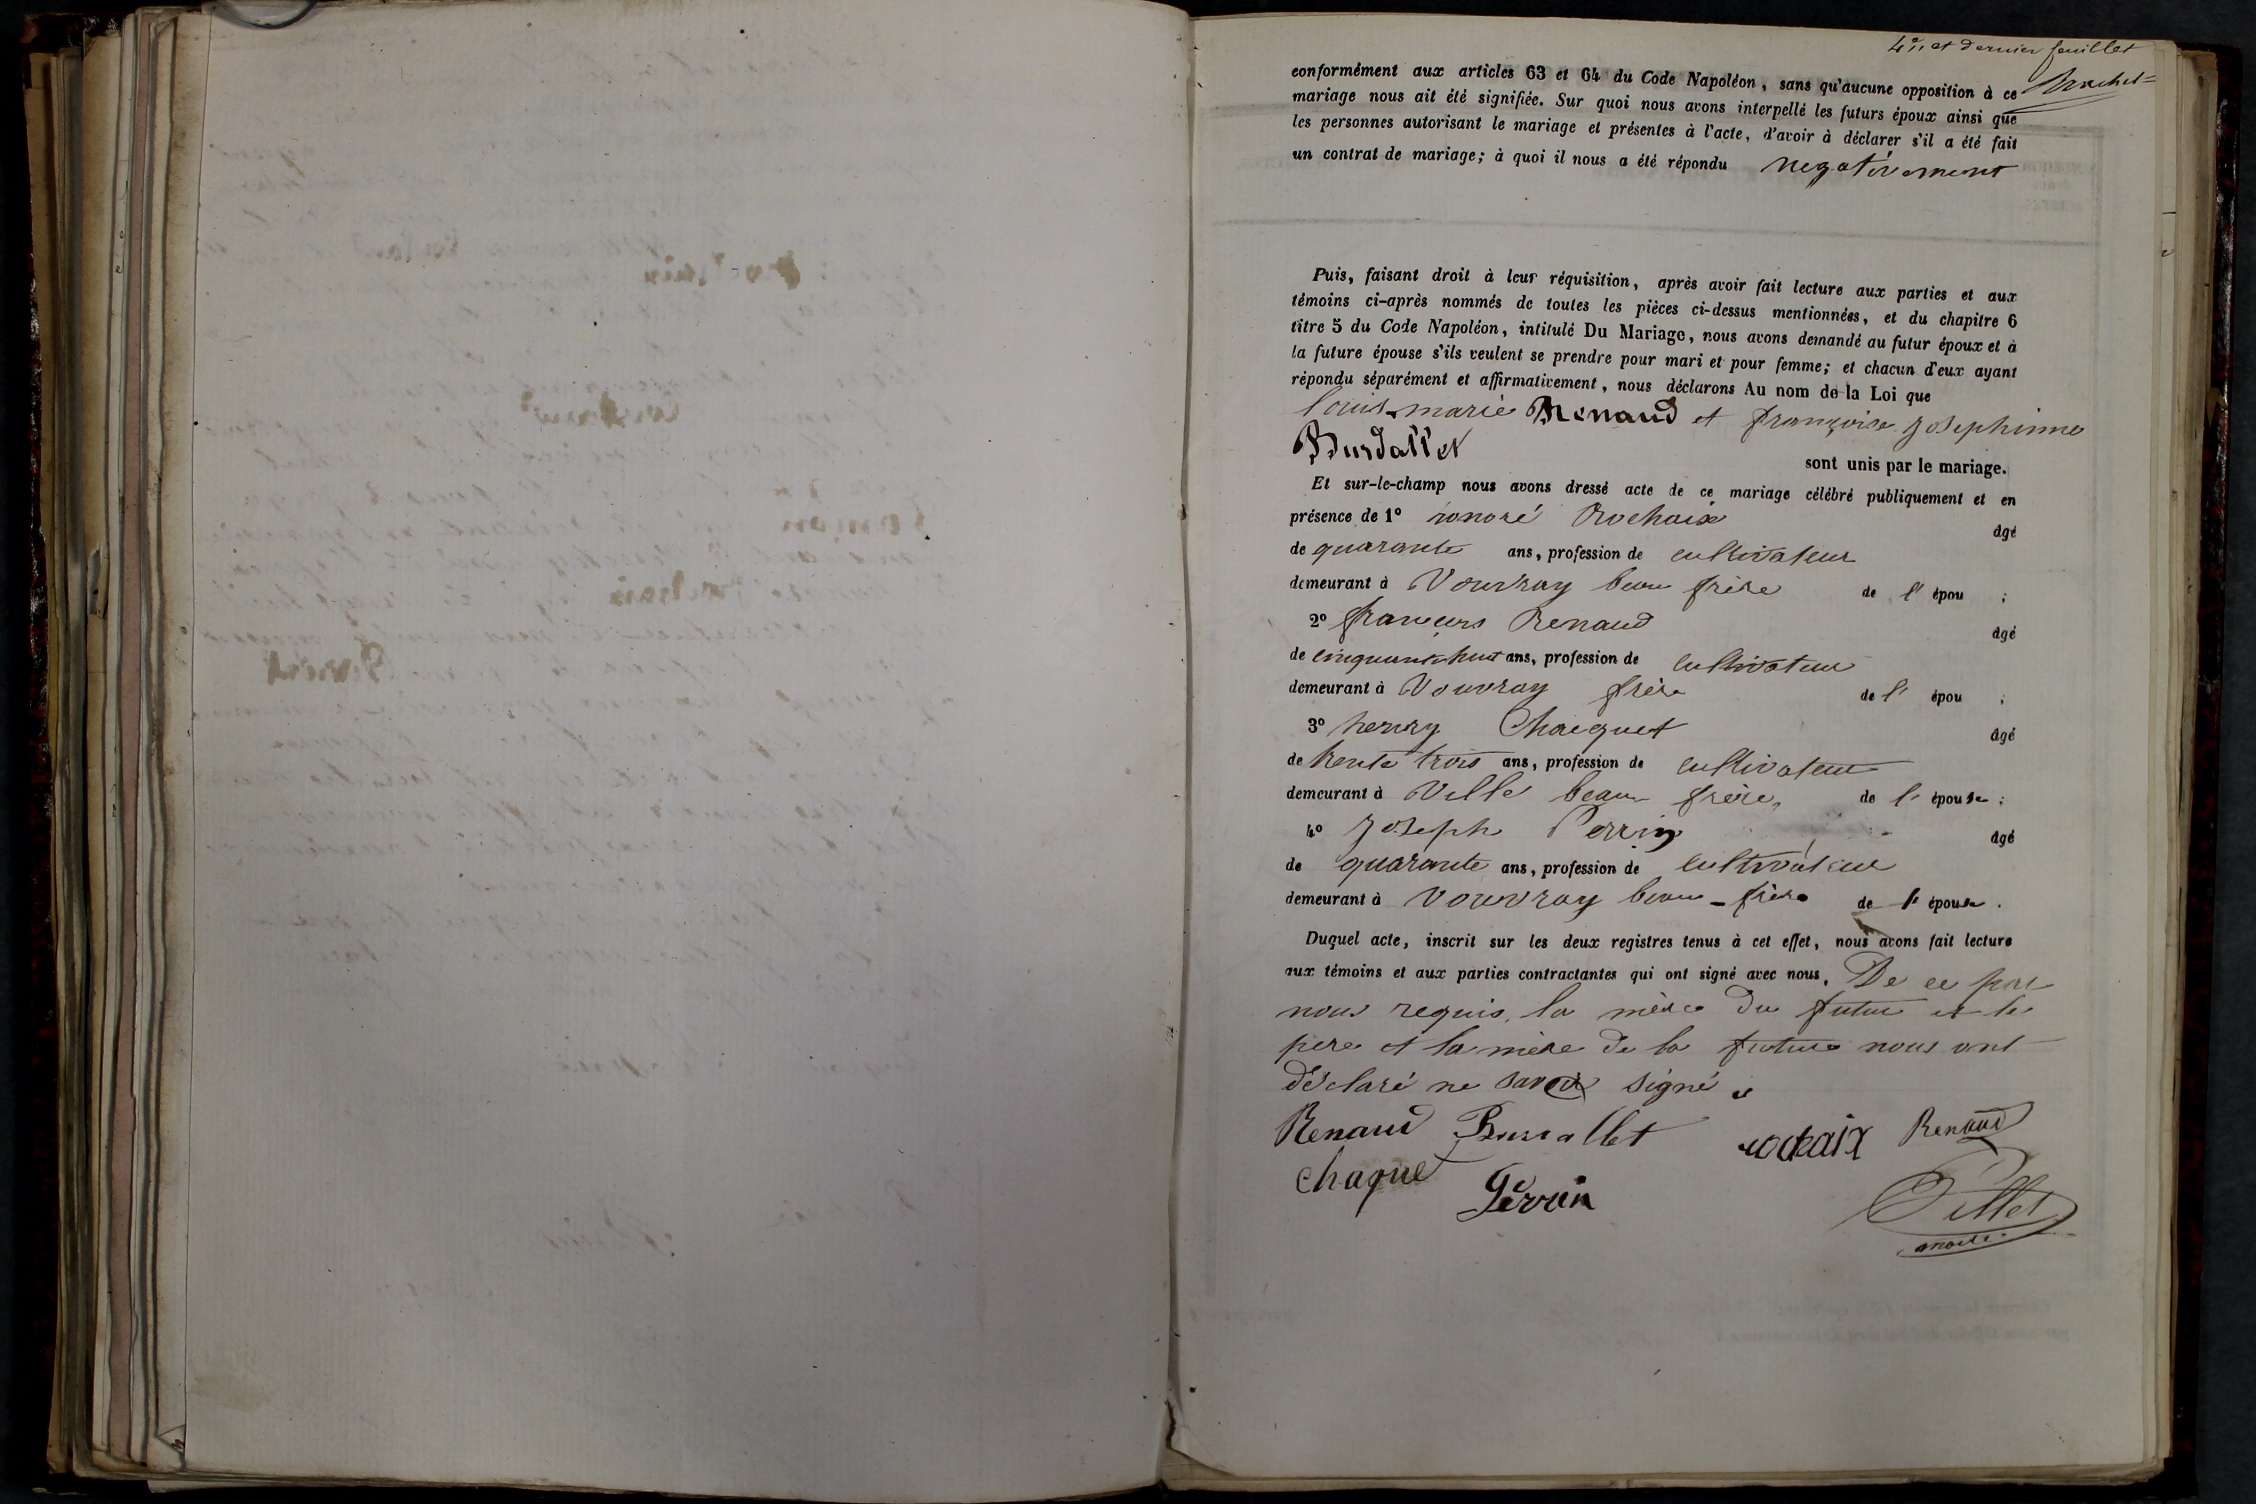 4e et dernier feuillet
conformément aux articles 63 et 64 du Code Napoléon, sans qu'aucune opposition à ce
mariage nous ait été signifiée. Sur quoi nous avons interpellé les futurs époux ainsi que
les personnes autorisant le mariage et présentes à l'acte, d'avoir à déclarer s'il a été fait
un contrat de mariage; à quoi il nous a été répondu negativement
Puis, faisant droit à leur réquisition, après avoir fait lecture aux parties et aux
témoins ci-après nommés de toutes les pièces ci-dessus mentionnées, et du chapitre 6
titre 5 du Code Napoléon, intitulé Du Mariage, nous avons demandé au futur époux et à
la future épouse s'ils veulent se prendre pour mari et pour femme; et chacun d'eux ayant
répondu séparément et affirmativement, nous déclarons Au nom de la Loi que
louis-marie Renaud et françoise josephinne
Burdallet
sont unis par le mariage.
Et sur-le-champ nous avons dressé acte de ce mariage célébré publiquement et en
présence de 1° honoré Rochaix âgé
de quarante ans, profession de cultivateur
demeurant à Vouvray beau frère de l' épou ;
2° françois Renaud âgé
de cinquante huit ans, profession de cultivateur
demeurant à Vouvray frère de l' épou ;
3° henry Chacquet âgé
de trente trois ans, profession de cultivateur
demeurant à Ville beau frère, de l' épouse ;
4° joseph Perrin âgé
de quarante ans, profession de cultivateur
demeurant à Vouvray beau-frère de l' épouse .
Duquel acte, inscrit sur les deux registres tenus à cet effet, nous avons fait lecture
aux témoins et aux parties contractantes qui ont signé avec nous. De ce par
nous requis, la mère du futur et le
père et la mère de la future nous ont
déclaré ne savoir signé.
Renaud Burdallet rochaix Renaud
chaque Pérrin
Pillet
maire.